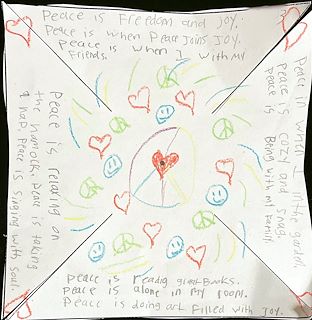 Peace is Freedom and Joy.
Peace is when Peace Joins Joy.
Peace is when I with my
Friends.
Peace in when I in the garden.
Peace is cozy and snug.
Peace is Being with my Family.
Peace is readig great Books.
Peace is alone in my room.
Peace is doing art filled with Joy.
Peace is relaxing on
the hamock. Peace is taking
a nap. Peace is singing with soul.